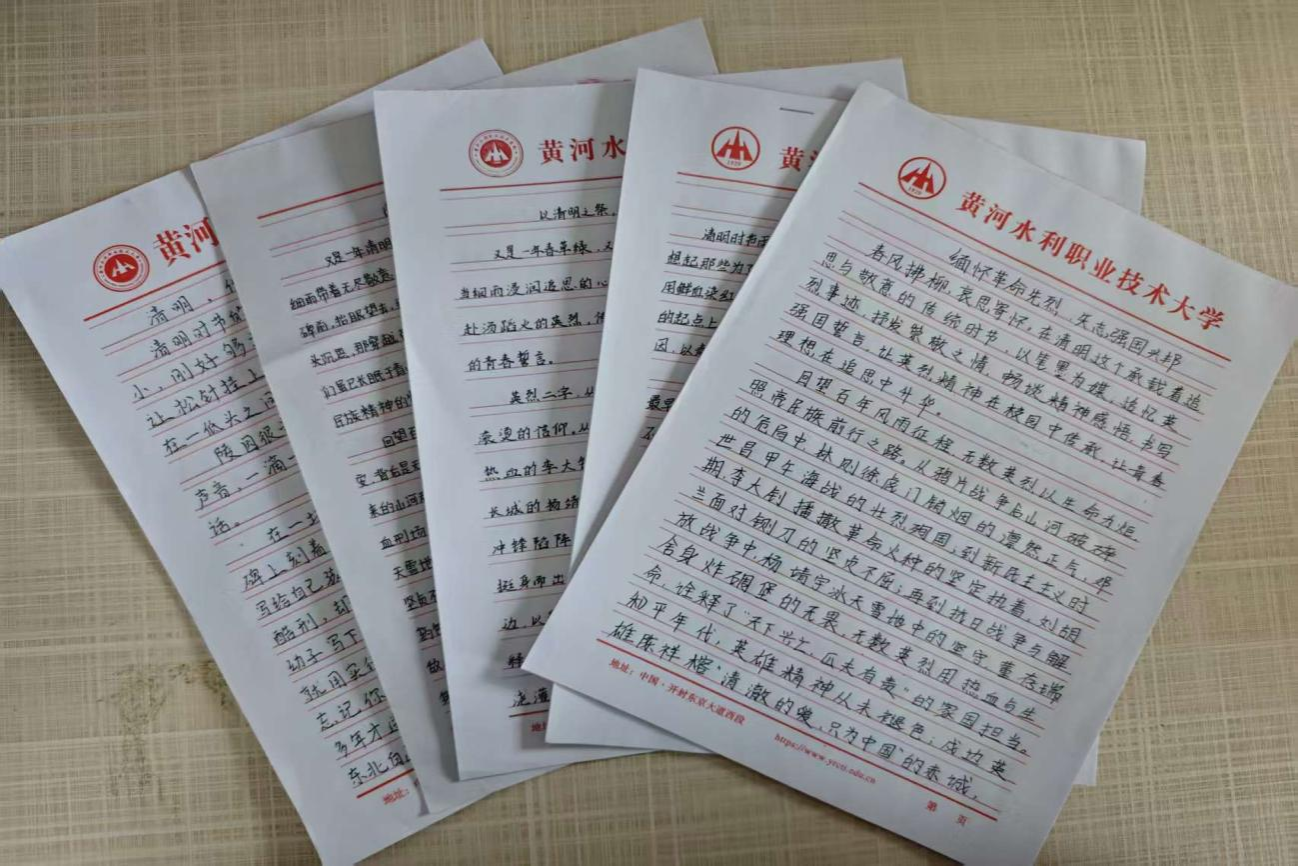 黄河
清明
清明时节
小，刚好够
让松针挂上
在一低头之间
陵园很
声音，一滴一
话。
在一块
碑上刻着
写给自己
酷刑，却
幼子，写下
就用实行
忘记，你
多年才
东北
地址：
又是一年清明
细雨带着无尽哀思
碑前，抬眼望去
头沉思，那穿越
们虽已长眠于
民族精神的
回望百
安，背后是无
来的山河
血刑场
天雪地
坚贞不
黄河水
以清明之祭，
又是一年春草绿，又
当细雨浸润追思的心
赴汤蹈火的英烈，
的青春誓言。
英烈二字，从
滚烫的信仰。从
热血的李大钊
长城的杨靖
冲锋陷阵
挺身而出
边，以
浇灌
地址
1929
黄
清明时节雨
想起那些为
用鲜血染红
的起点上
因，以
1929
黄河水利职业技术大学
缅怀革命先烈，矢志强国兴邦
春风拂柳，哀思寄怀。在清明这个承载着追
思与敬意的传统时节，以笔墨为媒，追忆英
烈事迹，抒发崇敬之情，畅谈精神感悟，书写
强国誓言，让英烈精神在校园中传承，让青春
理想在追思中升华。
回望百年风雨征程，无数英烈以生命为炬，
照亮民族前行之路。从鸦片战争后山河破碎
的危局中，林则徐虎门销烟的凛然正气，邓
世昌甲午海战的壮烈殉国，到新民主主义时
期，李大钊播撒革命火种的坚定执着，刘胡
兰面对铡刀的坚贞不屈；再到抗日战争与解
放战争中，杨靖宇冰天雪地中的坚守，董存瑞
舍身炸碉堡的无畏，无数英烈用热血与生
命，诠释了“天下兴亡，匹夫有责”的家国担当。
和平年代，英雄精神从未褪色；戍边英
雄陈祥榕“清澈的爱，只为中国”的赤诚，
地址：中国·开封东京大道西段
https://www.yrcti.edu.cn
第 页